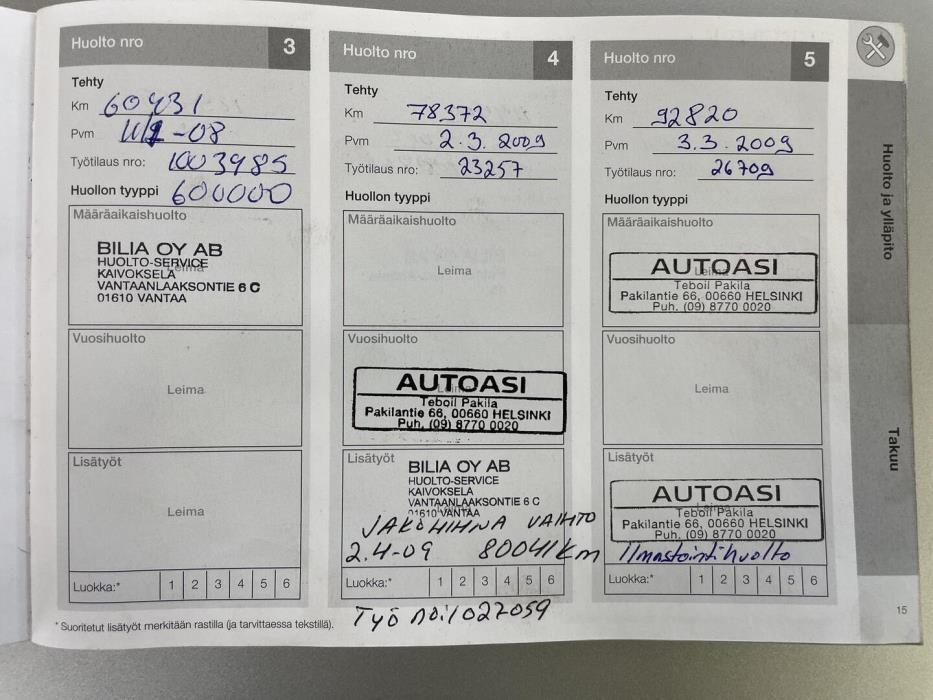 Huolto nro 3
Tehty
Km 60431
Pvm -08
Työtilaus nro: 1003985
Huollon tyyppi 600000
Määräaikaishuolto
Leima
BILIA OY AB
HUOLTO-SERVICE
KAIVOKSELA
VANTAANLAAKSONTIE 6 C
01610 VANTAA
Vuosihuolto
Leima
Lisätyöt
Leima
Luokka:* 1 2 3 4 5 6
Huolto nro 4
Tehty
Km 78372
Pvm 2.3.2009
Työtilaus nro: 23257
Huollon tyyppi
Määräaikaishuolto
Leima
Vuosihuolto
AUTOASI
Teboil Pakila
Pakilantie 66, 00660 HELSINKI
Puh. (09) 8770 0020
Lisätyöt
BILIA OY AB
HUOLTO-SERVICE
KAIVOKSELA
VANTAANLAAKSONTIE 6 C
01610 VANTAA
JAKOHIHNA VAIHTO
2.4-09 80041 km
Luokka:* 1 2 3 4 5 6
Työ no: 1027059
Huolto nro 5
Tehty
Km 92820
Pvm 3.3.2009
Työtilaus nro: 26709
Huollon tyyppi
Määräaikaishuolto
Leima
AUTOASI
Teboil Pakila
Pakilantie 66, 00660 HELSINKI
Puh. (09) 8770 0020
Vuosihuolto
Leima
Lisätyöt
AUTOASI
Teboil Pakila
Pakilantie 66, 00660 HELSINKI
Puh. (09) 8770 0020
Ilmastointihuolto
Luokka:* 1 2 3 4 5 6
* Suoritetut lisätyöt merkitään rastilla (ja tarvittaessa tekstillä).
Huolto ja ylläpito
Takuu
15